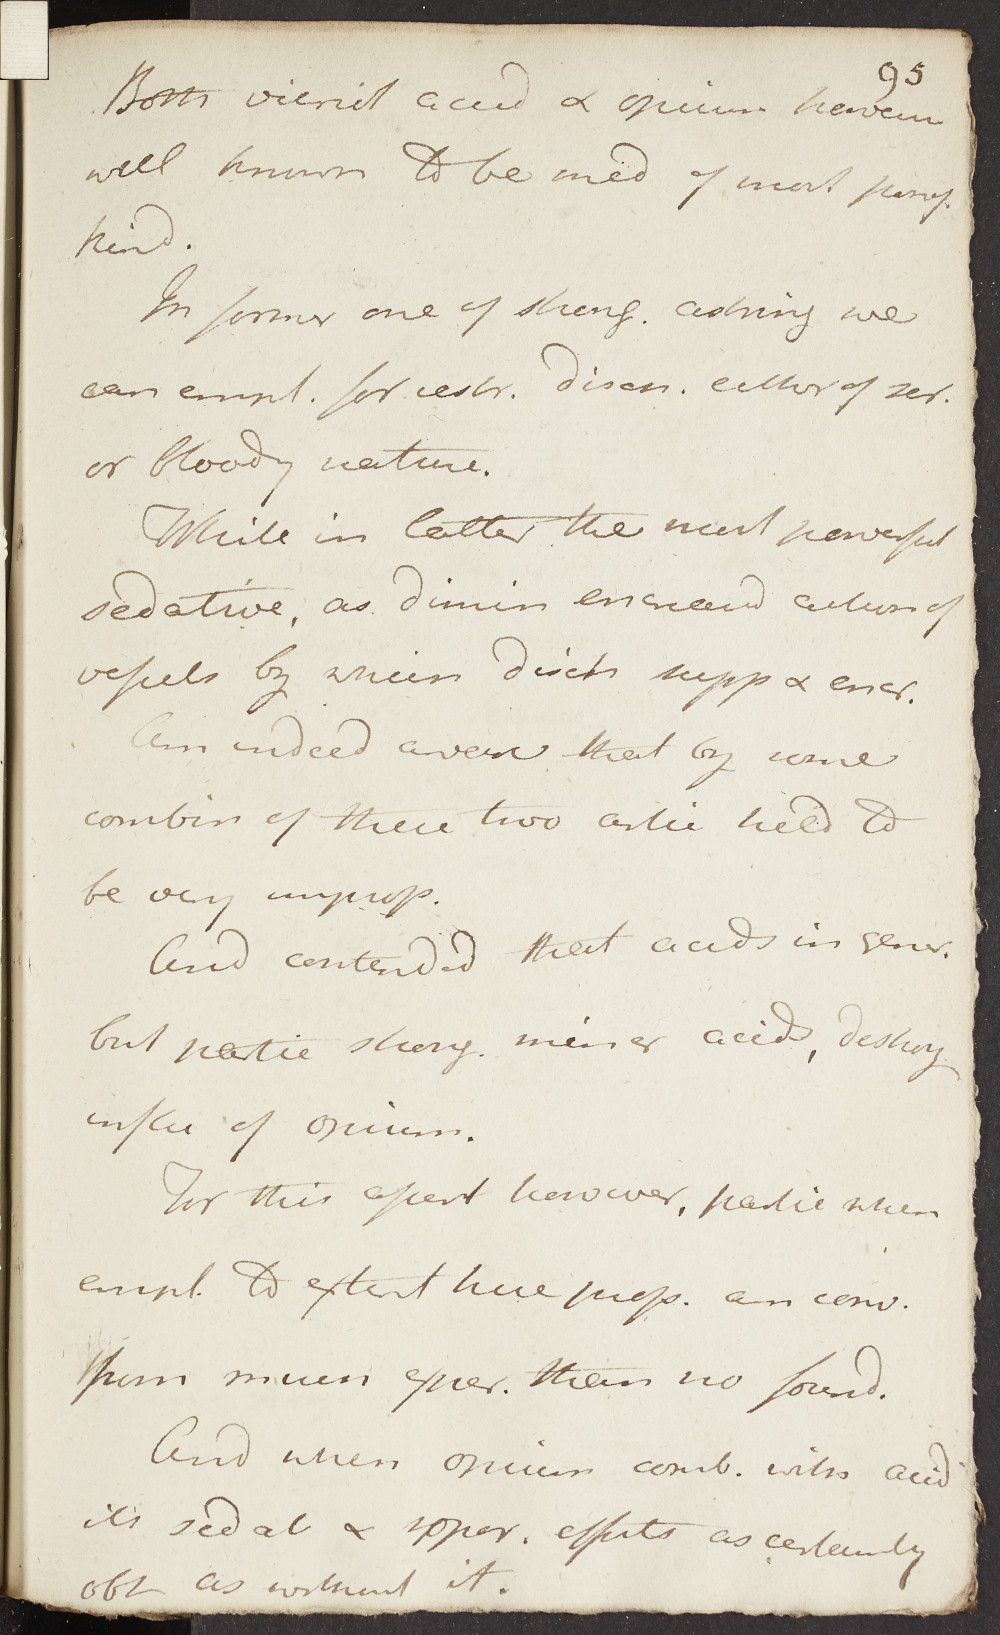 95
Both vitriol acid & opium however
well known to be med of most
kind.
In former one of strong. astring we
can empl. for restr. disch. either of ser.
or bloody nature.
While in latter the most powerful
sedative, as dimin encreased action of
vessels by which disch supp & encr.
Am indeed aware that by some
combin of these two artic held to
be very improp.
And contended that acids in gener.
but partic strong. miner acids, destroy
influ of opium.
For this assert however, partic when
empl. to extent here prop. am conv.
from much exper. there no found.
And when opium comb. with acid
its sedat & sopor. effects as certainly
obt as without it.